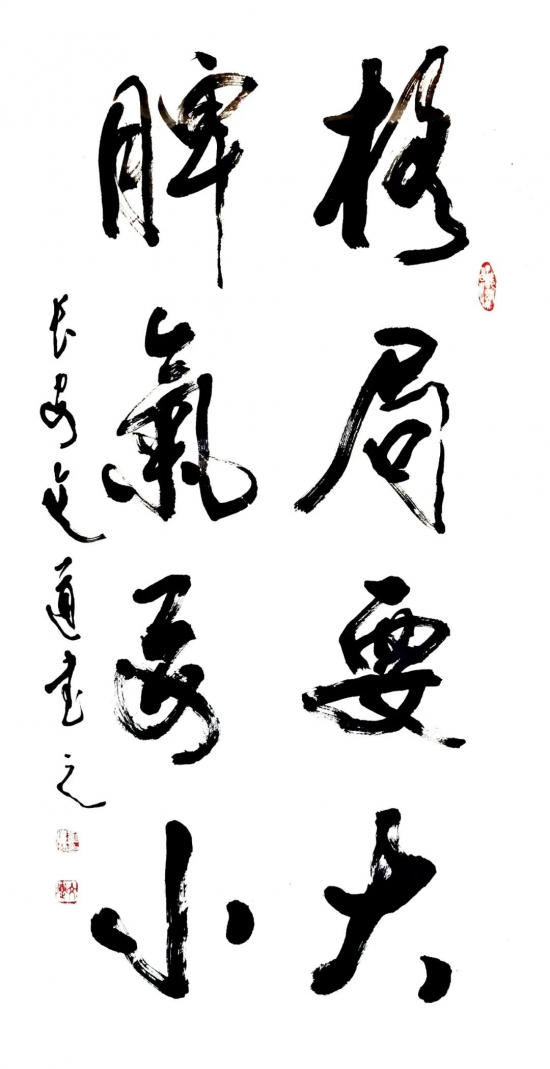 格局要大
脾氣要小
長安道書之